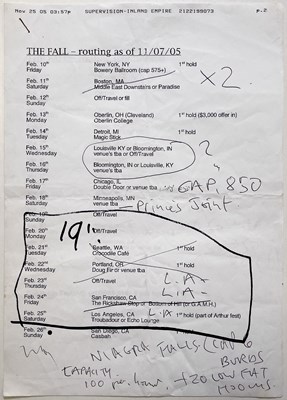 Nov 25 05 03:57p SUPERVISION-INLAND EMPIRE 2122199073 p.2
THE FALL – routing as of 11/07/05
Feb. 10th New York, NY 1st hold
Friday Bowery Ballroom (cap 575+)
X2
Feb. 11th Boston, MA
Saturday Middle East Downstairs or Paradise
Feb. 12th Off/Travel or fill
Sunday
Feb. 13th Oberlin, OH (Cleveland) 1st hold ($3,000 offer in)
Monday Oberlin College
Feb. 14th Detroit, MI 1st hold
Tuesday Magic Stick
Feb. 15th Louisville KY or Bloomington, IN
Wednesday venue's tba or Off/Travel
?
Feb. 16th Bloomington, IN or Louisville, KY
Thursday venue's tba
Feb. 17th Chicago, IL
Friday Double Door or venue tba
CAP, 850
Feb. 18th Minneapolis, MN
Saturday venue tba
Prince's Joint
Feb. 19th Off/Travel
Sunday
19"
Feb. 20th Off/Travel
Monday
Feb. 21st Seattle, WA 1st hold
Tuesday Crocodile Café
Feb. 22nd Portland, OR 1st hold
Wednesday Doug Fir or venue tba
Feb. 23rd Off/Travel
Thursday
L.A-
Feb. 24th San Francisco, CA 1st hold
L.A-
Friday The Rickshaw Stop or Bottom of Hill (or G.A.M.H.)
Feb. 25th Los Angeles, CA 1st hold (part of Arthur fest)
L.A
Saturday Troubadour or Echo Lounge
Feb. 26th San Diego, CA
Sunday Casbah
NIAGRA FALLS
CAPACITY
100 per. hour. +20 LOW FAT